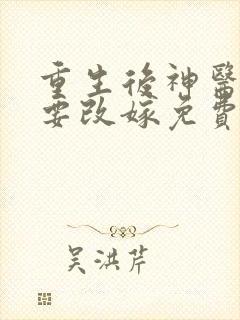 重生後神醫
要改嫁免費
吳洪芹